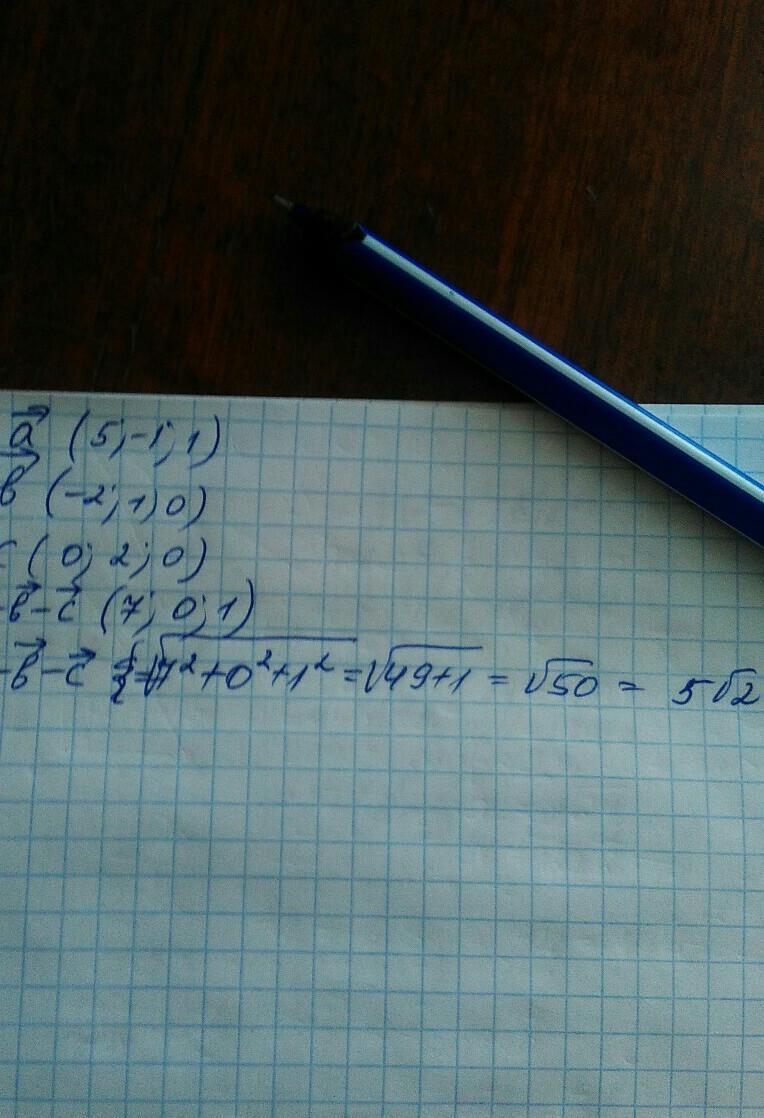 a⃗ (5; -1; 1)
b⃗ (-2; 1; 0)
c (0; 2; 0)
-b⃗-c⃗ (7; 0; 1)
-b⃗-c⃗ = √7²+0²+1² = √49+1 = √50 = 5√2